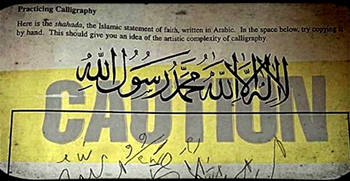 Practicing Calligraphy
Here is the shahada, the Islamic statement of faith, written in Arabic. In the space below, try copying it
by hand. This should give you an idea of the artistic complexity of calligraphy.
لا إله إلا الله محمد رسول الله
CAUTION